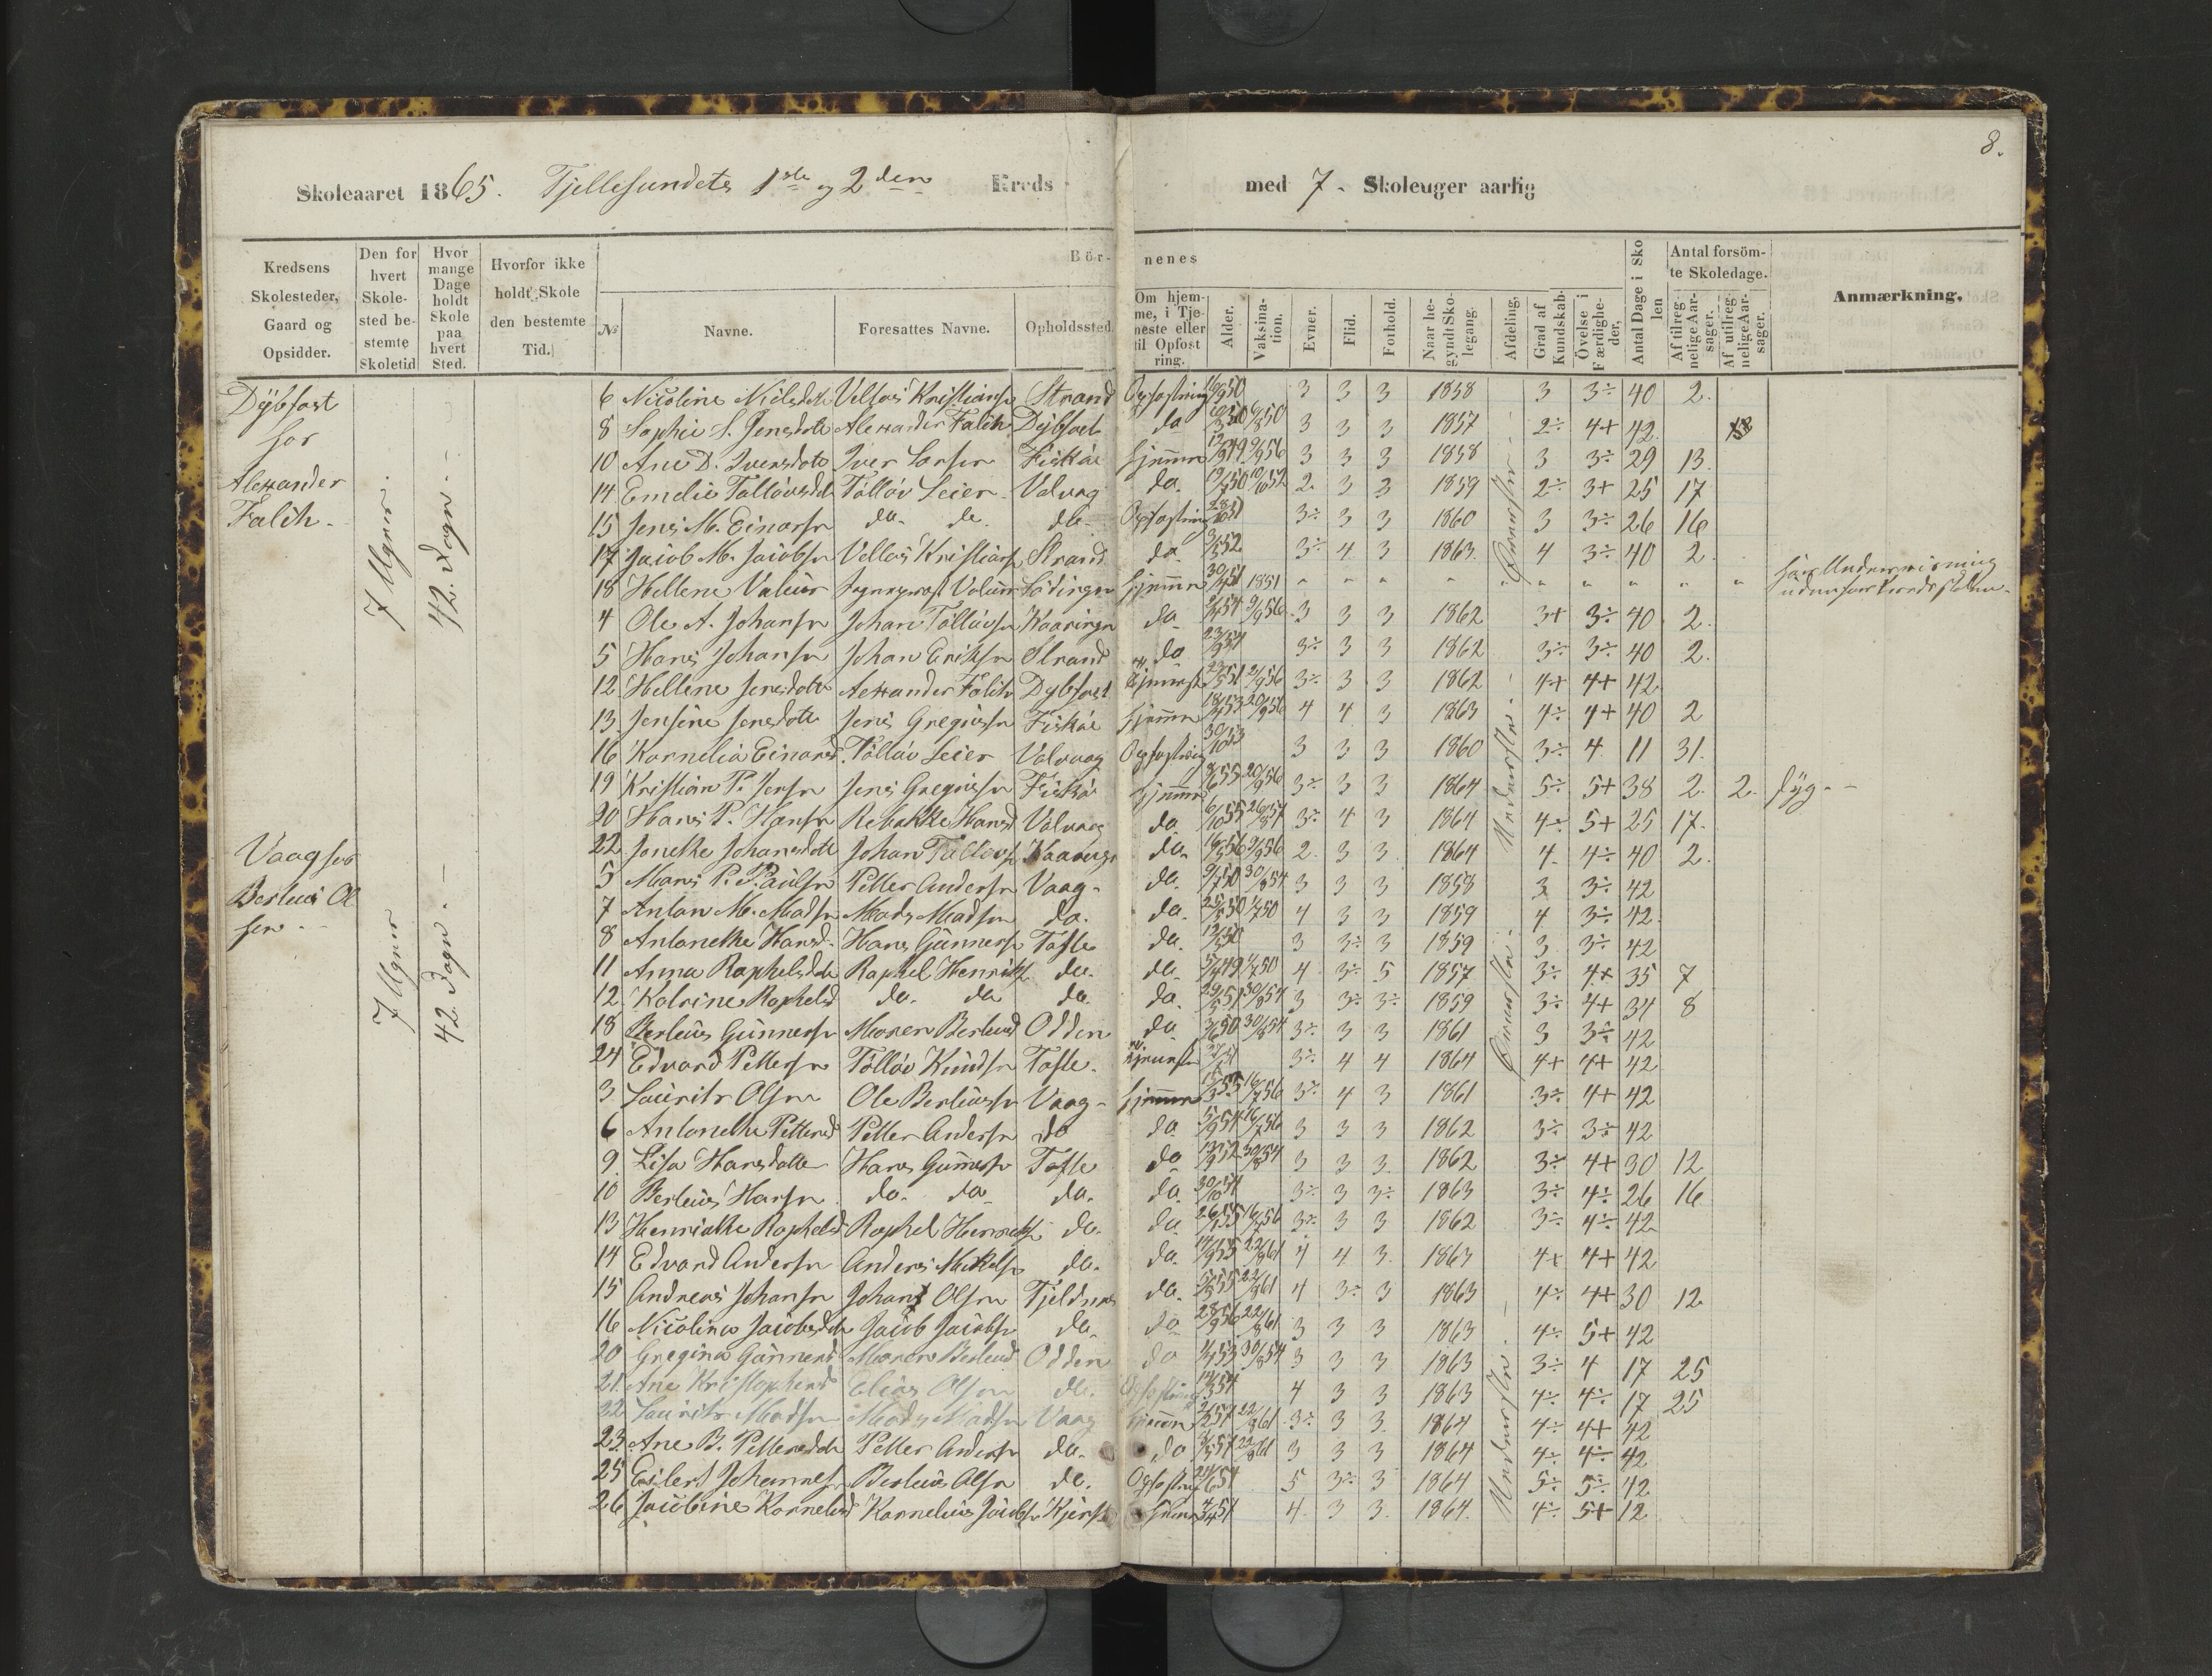 8.
Skoleaaret 1865. Tjellesundets 1ste og 2den Kreds med 7 Skoleuger aarlig
Kredsens Skolesteder, Gaard og Opsidder.
Den for hvert Skolested bestemte Skoletid
Hvor mange Dage holdt Skole paa hvert Sted.
Hvorfor ikke holdt Skole den bestemte Tid.
Börnenes
№
Navne.
Foresattes Navne.
Opholdssted.
Om hjemme, i Tjeneste eller til Opfostring.
Alder.
Vaksination.
Evner.
Flid.
Forhold.
Naar begyndt Skolegang.
Afdeling.
Grad af Kundskab.
Övelse i Færdigheder,
Antal Dage i Skolen
Antal forsömte Skoledage.
Af tilregnelige Aarsager.
Af utilregnelige Aarsager.
Anmærkning.
Dybfost
hos
Alexander
Falch.
7 Uger.
42. Dage.
Vaag hos
Berteus Olsen
7 Uger
42 Dage
6 Nicoline Nielsdtr Velfas Kristiansn Strand Opfostring 16/9 50 3 3 3 1858 3 3÷ 40 2.
8 Sophie S. Jensdotr Alexander Falch Dybfost do 3 3 3 1857 2÷ 4+ 42
10 Ane D. Iversdotr Iver Larsen Fiskåe hjemme 3 3 3 1858 3 3÷ 29 13.
14 Emelie Tolløvsdtr Tølløv Leier Valvag do. 2. 3 3 1859 2÷ 3+ 25 17
15 Jens M. Einarsn do. do. do. Opfostring 3÷ 3 3 1860 3 3÷ 26 16
17 Jacob M. Jacobsn Vellas Kristiansn Strand do. 3/3 52 3÷ 4 3 1863. 4 3÷ 40 2.
18 Hellene Valeur Valeur Lödingen hjemme 30/4 51 1851 " " " " " " " " " har Underviisning udenfor Kredsskolen.
4 Ole A. Johansn Johan Tølløvsn Kaaringen do 9/9 56 3 3 3 1862 3+ 3÷ 40 2.
5 Hans Johansn Johan Eriksn Strand do 23/9 54 3÷ 3 3 1862 3÷ 3÷ 40 2.
12 Hellene Jensdotr Alexander Falch Dybfost 3÷ 3 3 1862 4+ 4+ 42
13 Jensine Jensdotr Jens Gregusn Fiskåe hjemme 18/4 53 20/9 56 4 4 3 1863 4÷ 4+ 40 2
16 Kornelia Einarsd. Tølløv Leier Valvaag Opfostring 30/10 53 3 3 3 1860 3÷ 4 11 31.
19 Kristian P. Jensn Jens Gregusn Fiskåe hjemme 20/9 56 3÷ 3 3 1864 5÷ 5+ 38 2. 2. syg.
20 Hans P. Hansn Rebekke Hansd Valvaag do. 6/10 55 26/8 57 3÷ 4 3 1864 4÷ 5+ 25 17.
22 Jonetke Johansdotr Johan Tølløvsn Kaaringen do. 2. 3 3 1864 4. 4÷ 40 2.
5 Mans P. Paulsn Petter Andersn Vaag. do. 30/8 54 3 3 3 1858 3 3÷ 42
7 Anton M. Madsn Mads Madsn do. do. 25/5 50 4 3 3 1859 4 3÷ 42
8 Antonetke Hansd. Hans Gunnersn Tofte do. 3 3÷ 3 1859 3 3÷ 42
11 Anna Raphelsdtr Raphel Henriksn do. do. 4 3÷ 5 1857 3÷ 4+ 35 7
12 Katrine Raphelsd do. do do do. 29/5 51 30/8 54 3 3÷ 3÷ 1859 3÷ 4+ 34 8
18 Berteus Gunnersn Maren Berteusd Odden do 30/8 54 3÷ 3 3 1861 3 3÷ 42
24 Edvard Pettersn Tølløv Knudsn Tofte. 3÷ 4 4 1864 4+ 4+ 42
3 Lauritz Olsn Ole Berteussn Vaag hjemme 16/7 56 3÷ 4 3 1861 3÷ 4+ 42
6 Antonetke Pettersd Petter Andersn do do 5/9 54 16/7 56 3 3 3 1862 3÷ 3÷ 42
9. Lisa Hansdatter Hans Gunnersn Tofte do 30/8 54 3 3 3. 1862 3÷ 4+ 30 12
10 Berteus Hansn do. do do. do. 30/10 54 3÷ 3 3÷ 1863 3÷ 4÷ 26 16
13 Henriatke Raphelsd Raphel Henriksn do. do. 16/7 56 3÷ 3 3 1862 3÷ 4÷ 42
14 Edvard Andersn Anders Mikkelsn do. do. 14/9 55 22/8 61 4 4 3. 1863 4+ 4+ 42
15 Andreas Johansn Johan Olsn Tjeldnes do. 5/5 55 22/8 61 4 3÷ 3 1863 4÷ 4+ 30 12
16 Nicolina Jacobsdtr Jacob Jacobsn do. do 28/9 56 22/8 61 3 3 3 1863 4÷ 5+ 42
20 Gregina Gunnersd Maren Berteusd Odden do 30/8 54 3 3 3 1863 3÷ 4 17 25
21. Ane Kristophersd Elias Olsn do. Opfostring 4 3 3 1863 4÷ 4÷ 17 25
22 Lauritz Madsn Mads Madsn Vaag hjemme 22/8 61 3÷ 3 3. 1864 4÷ 4+ 42
23. Ane B. Pettersdtr Petter Andersn do. do 22/8 61 3 3 3 1864 4÷ 4÷ 42
25 Eilert Johannesn Berteus Olsn do. Opfostring 5 3÷ 3 1864 5÷ 5÷ 42
26 Jacobine Kornelisd Kornelius Jacobsn hjemme 4. 3 3. 1864. 4÷ 5+ 12
Överste
Nederste
Överste
Nederste